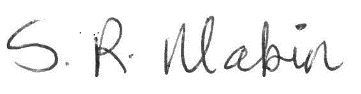 S. R. Mabin